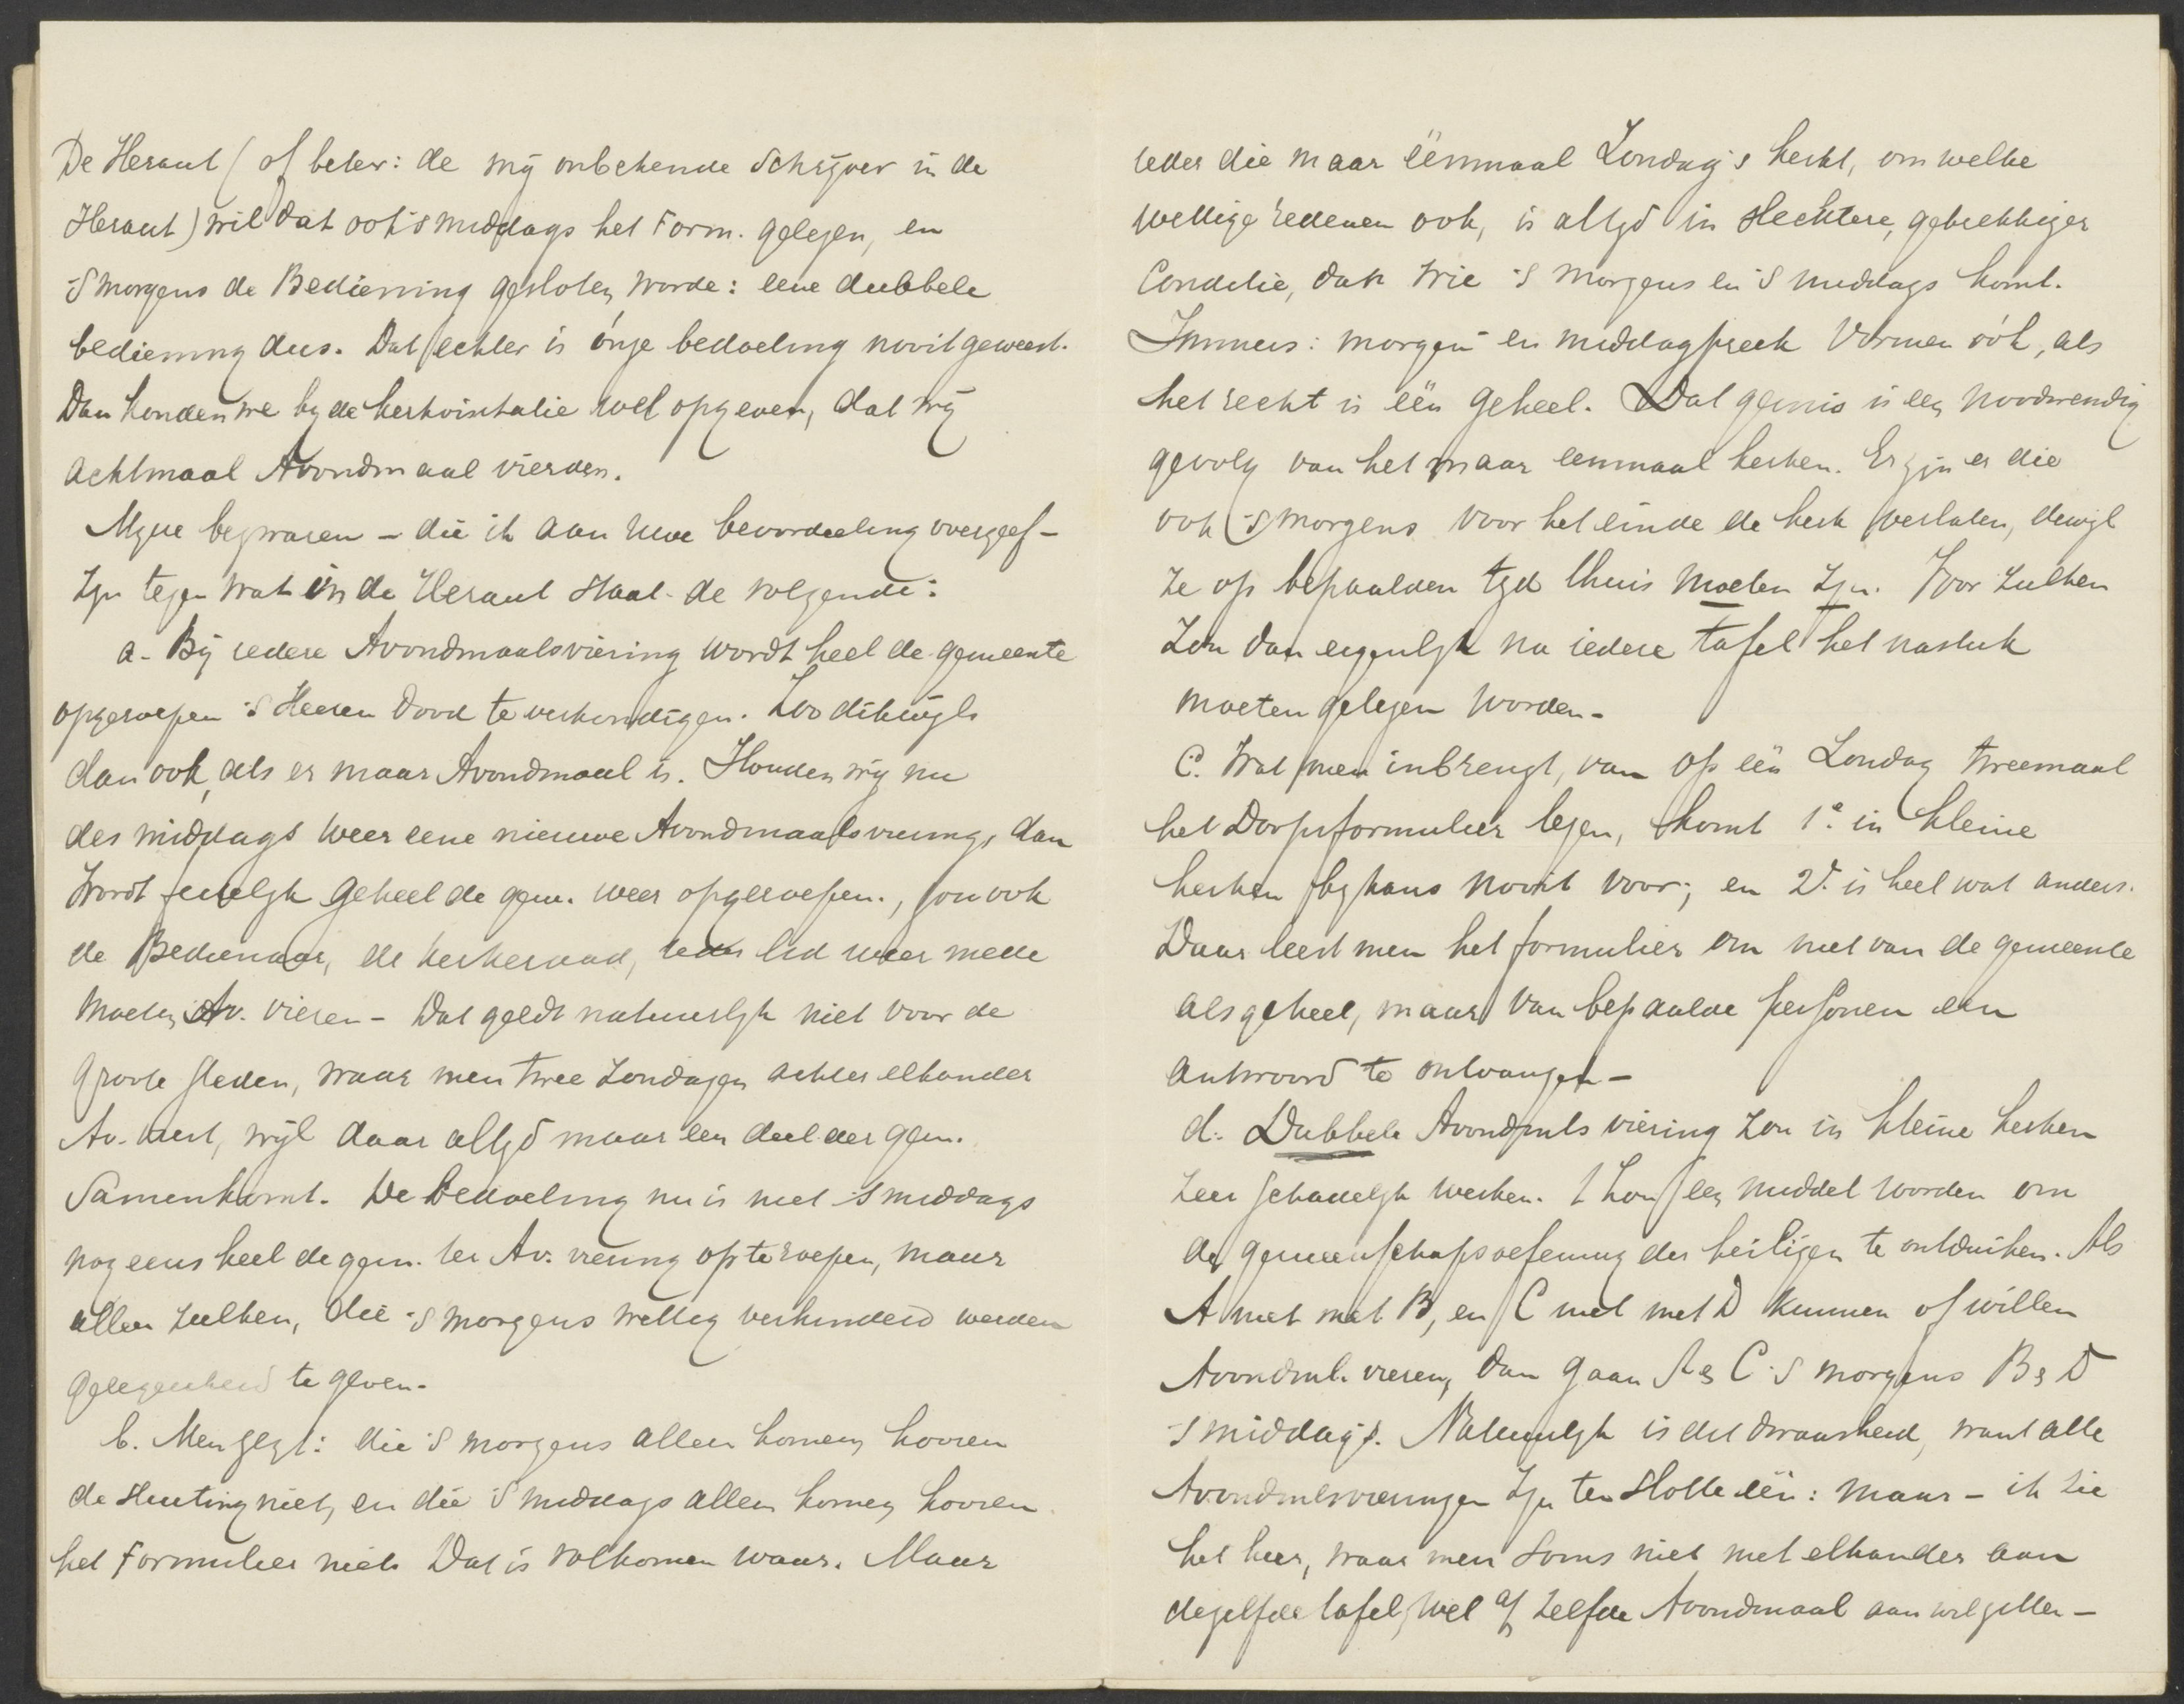 De Heraut (of beter: de mij onbekende Schrijver in de
Heraut) wil dat ook 's middags het Form. gelezen, en
's morgens de Bediening gesloten worde: eene dubbele
bediening dus. Dat echter is ónze bedoeling nooit geweest.
Dan konden we bij de kerkvisitatie wel opgeven, dat wij
achtmaal Avondmaal vierden.
Mijne bezwaren – die ik aan Uwe beoordeeling overgeef –
zijn tegen wat in de Heraut staat de volgende:
a. Bij iedere Avondmaalsviering wordt heel de gemeente
opgeroepen 's Heeren dood te verkondigen. Zoo dikwijls
dan ook, als er maar Avondmaal is. Houden wij nu
des middags weer eene nieuwe Avondmaalsviering, dan
wordt feitelijk geheel de gem. weer opgeroepen., zou ook
de Bedienaar, de kerkeraad, ieder lid weer mede
moeten Av. vieren – Dat geldt natuurlijk niet voor de
groote steden, waar men twee Zondagen achter elkander
Av. viert, wijl daar altijd maar een deel der gem.
Samenkomt. De bedoeling nu is niet 's middags
nog eens heel de gem. ter Av. viering op te roepen, maar
allen zulken, die 's morgens wettig verhinderd werden
gelegenheid te geven.
b. Men zegt: die 's morgens alleen komen, hooren
de sluiting niet, en die 's middags alleen komen, hooren
het Formulier niet. Dat is volkomen waar. Maar
ieder die maar éénmaal Zondag's kerkt, om welke
wettige redenen ook, is altijd in slechtere, gebrekkiger
Conditie, dan wie 's morgens en 's middags komt.
Immers: morgen en middagpreek vormen óók, als
het recht is één geheel. Dat gemis is een noodwendig
gevolg van het maar eenmaal kerken. Er zijn er die
ook 's morgens voor het einde de kerk verlaten, dewijl
ze op bepaalden tijd thuis moeten zijn. Voor zulken
zou dan eigenlijk na iedere tafel het nastuk
moeten gelezen worden –
C. Wat men inbrengt, van op één Zondag tweemaal
het Doopsformulier lezen, komt 1e. in kleine
kerken bijkans nooit voor; en 2e. is heel wat anders.
Daar leest men het formulier om niet van de gemeente
als geheel, maar van bepaalde personen een
antwoord te ontvangen –
d. Dubbele Avondmls viering zou in kleine kerken
zeer schadelijk werken. 't Zou een middel worden om
de gemeenschapsoefening der heiligen te ontduiken. Als
A niet met B, en C niet met D kunnen of willen
Avondml. vieren, dan gaan A en C 's morgens B en D
's middags. Natuurlijk is dit dwaasheid, want alle
Avondmlsvieringen zijn ten slotte één: maar – ik zie
het hier, waar men soms niet met elkander aan
dezelfde tafel, wel a/h zelfde Avondmaal aan wil zitten –